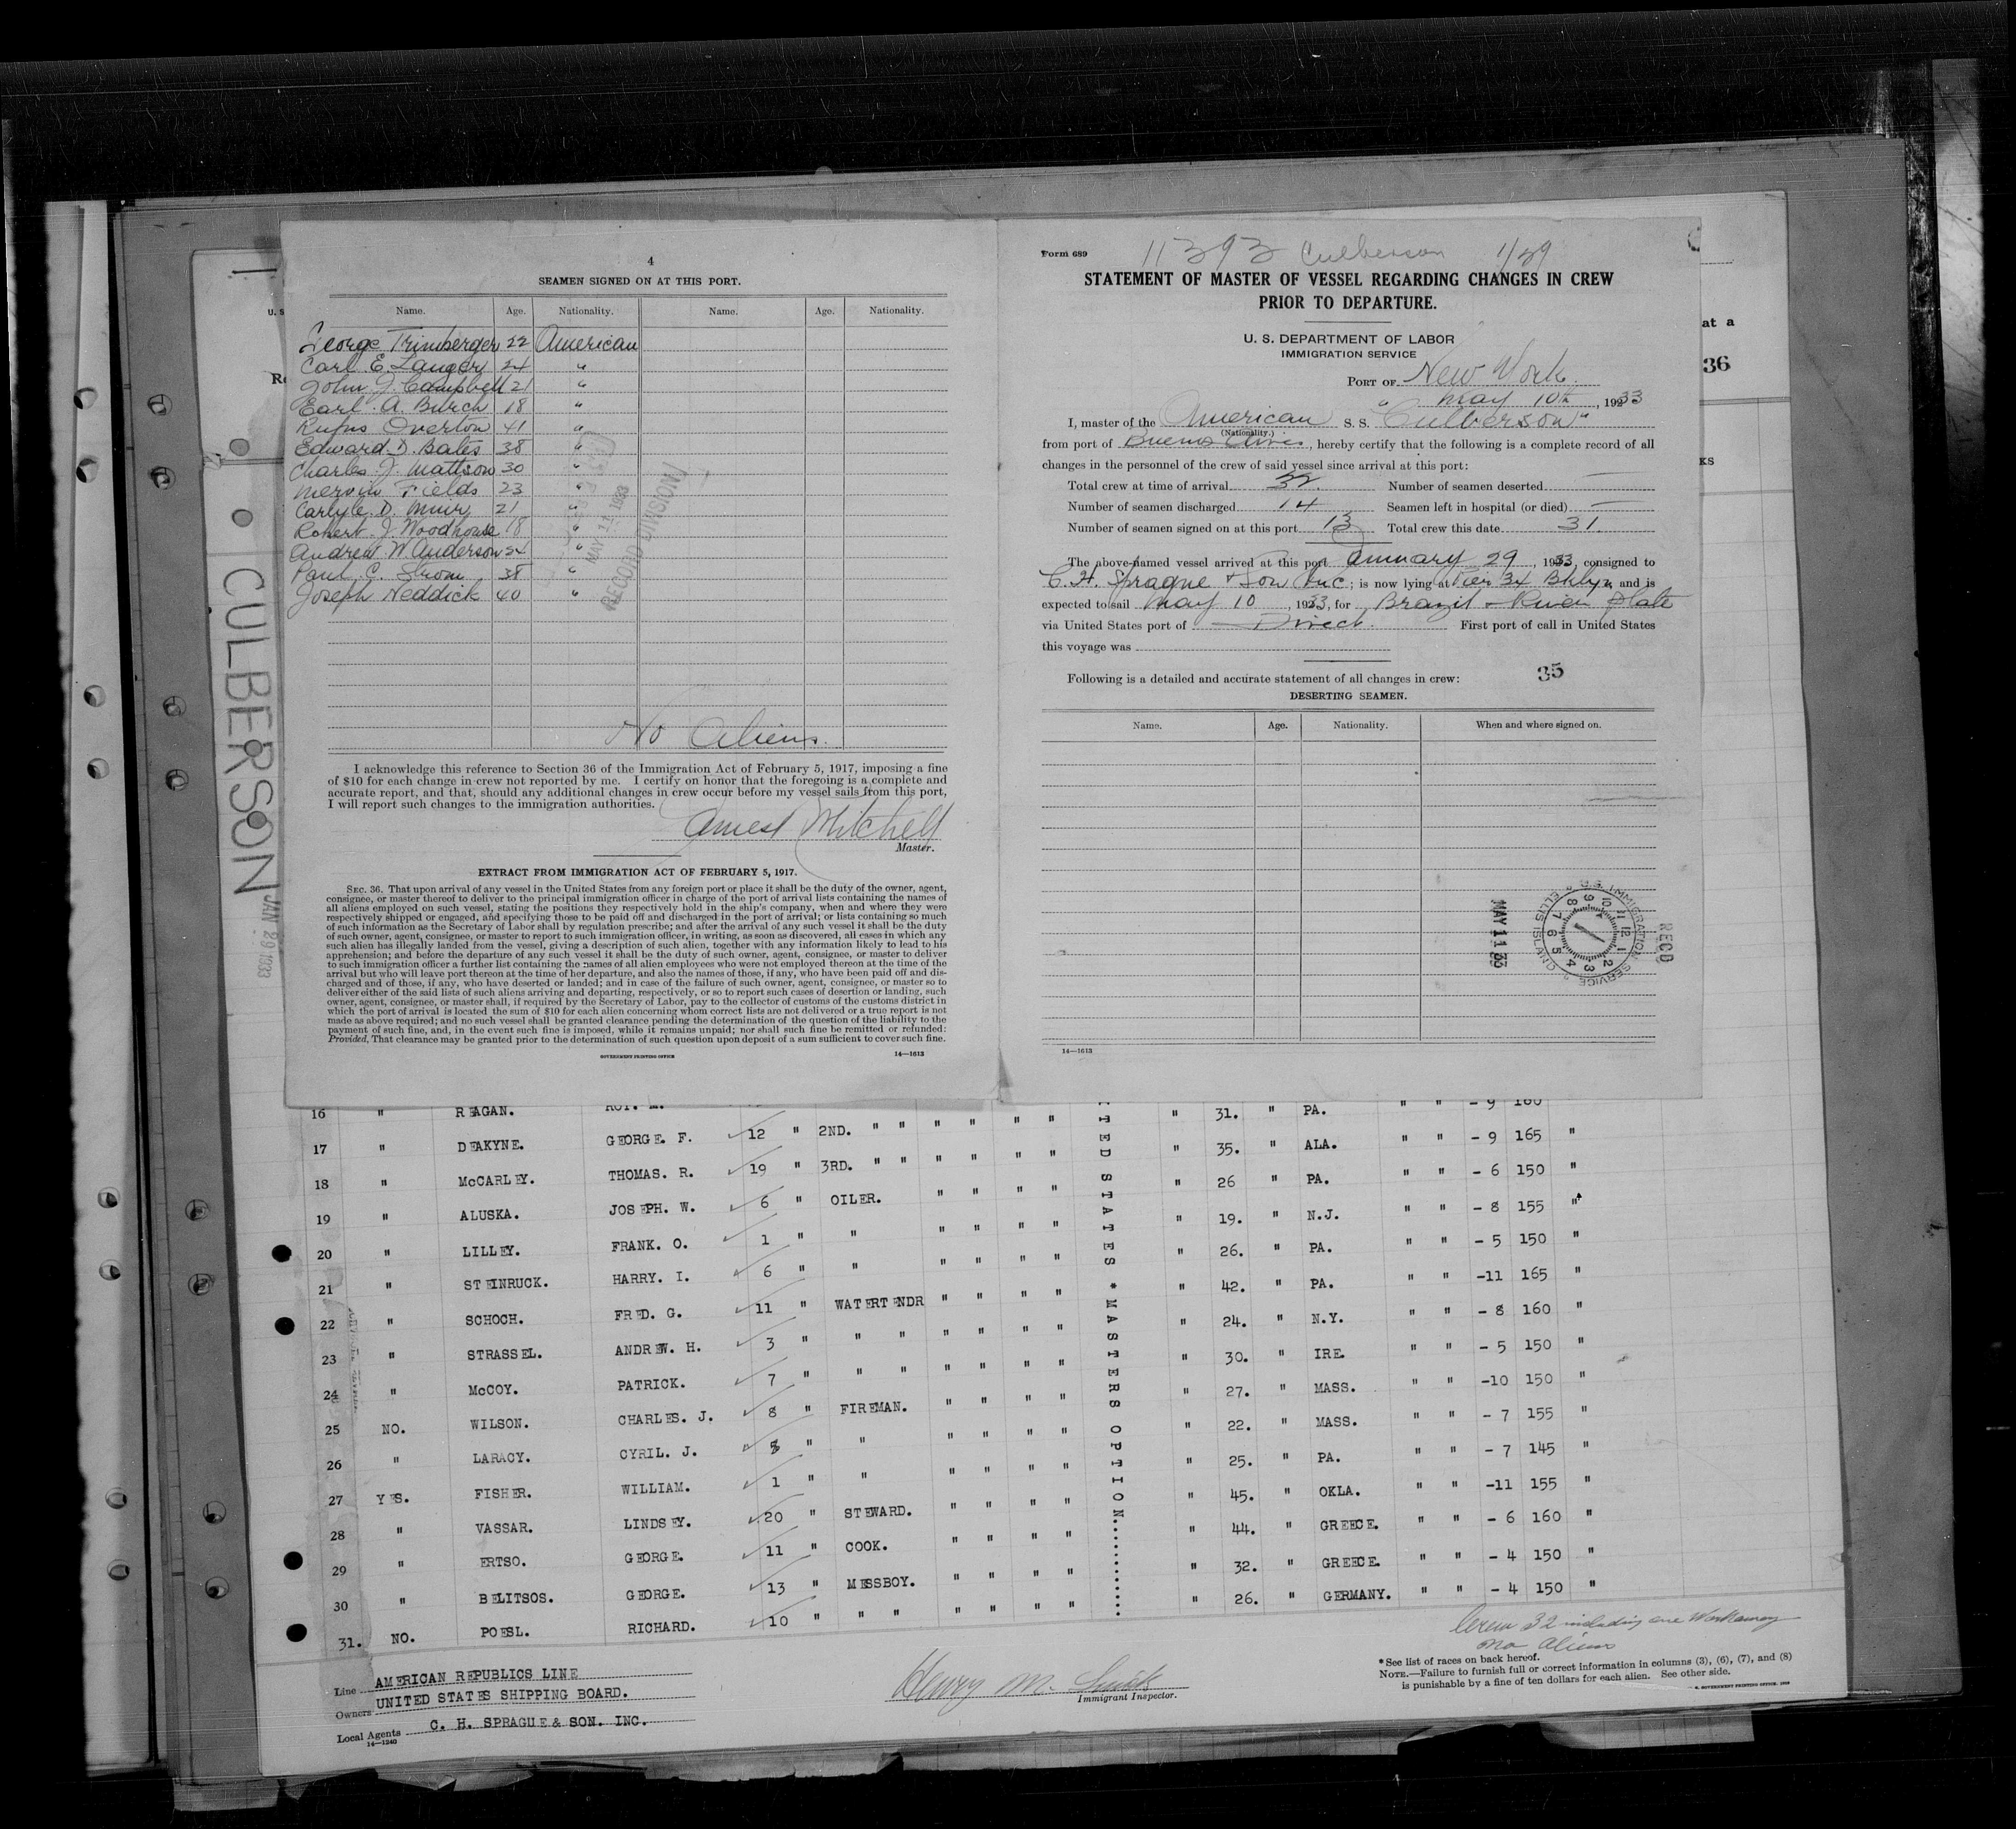 4
SEAMEN SIGNED ON AT THIS PORT.
Name. Age. Nationality. Name. Age. Nationality.
George Trimberger 22 American
Carl E. Langer 24 "
John J. Campbell 21 "
Earl. A. Burch 18 "
Rufus Overton 41 "
Edward. D. Bates 38 "
Charles. J. Mattson 30 "
Mervin Fields 23 "
Carlyle. D. Muir 21 "
Robert. J. Woodhouse 18 "
Andrew W. Anderson 24 "
Paul. C. Strom 38 "
Joseph Neddick 40 "
MAY 11 1933
RECORD DIVISION
No Aliens.
I acknowledge this reference to Section 36 of the Immigration Act of February 5, 1917, imposing a fine
of $10 for each change in crew not reported by me. I certify on honor that the foregoing is a complete and
accurate report, and that, should any additional changes in crew occur before my vessel sails from this port,
I will report such changes to the immigration authorities.
Mitchell
Master.
EXTRACT FROM IMMIGRATION ACT OF FEBRUARY 5, 1917.
SEC. 36. That upon arrival of any vessel in the United States from any foreign port or place it shall be the duty of the owner, agent,
consignee, or master thereof to deliver to the principal immigration officer in charge of the port of arrival lists containing the names of
all aliens employed on such vessel, stating the positions they respectively hold in the ship's company, when and where they were
respectively shipped or engaged, and specifying those to be paid off and discharged in the port of arrival; or lists containing so much
of such information as the Secretary of Labor shall by regulation prescribe; and after the arrival of any such vessel it shall be the duty
of such owner, agent, consignee, or master to report to such immigration officer, in writing, as soon as discovered, all cases in which any
such alien has illegally landed from the vessel, giving a description of such alien, together with any information likely to lead to his
apprehension; and before the departure of any such vessel it shall be the duty of such owner, agent, consignee, or master to deliver
to such immigration officer a further list containing the names of all alien employees who were not employed thereon at the time of the
arrival but who will leave port thereon at the time of her departure, and also the names of those, if any, who have been paid off and dis-
charged and of those, if any, who have deserted or landed; and in case of the failure of such owner, agent, consignee, or master so to
deliver either of the said lists of such aliens arriving and departing, respectively, or so to report such cases of desertion or landing, such
owner, agent, consignee, or master shall, if required by the Secretary of Labor, pay to the collector of customs of the customs district in
which the port of arrival is located the sum of $10 for each alien concerning whom correct lists are not delivered or a true report is not
made as above required; and no such vessel shall be granted clearance pending the determination of the question of the liability to the
payment of such fine, and, in the event such fine is imposed, while it remains unpaid; nor shall such fine be remitted or refunded:
Provided, That clearance may be granted prior to the determination of such question upon deposit of a sum sufficient to cover such fine.
GOVERNMENT PRINTING OFFICE 14—1613
Form 689
11393 Culberson 1/29
STATEMENT OF MASTER OF VESSEL REGARDING CHANGES IN CREW
PRIOR TO DEPARTURE.
U. S. DEPARTMENT OF LABOR
IMMIGRATION SERVICE
PORT OF New York.
May 10th, 1933
I, master of the American S. S. "Culberson"
(Nationality.)
from port of Buenos Aires, hereby certify that the following is a complete record of all
changes in the personnel of the crew of said vessel since arrival at this port:
Total crew at time of arrival 32. Number of seamen deserted —
Number of seamen discharged 14 Seamen left in hospital (or died) —
Number of seamen signed on at this port 13 Total crew this date 31.
The above-named vessel arrived at this port January 29, 1933, consigned to
C. H. Sprague & Son Inc; is now lying at Pier 34 Bklyn, and is
expected to sail May 10, 1933, for Brazil & River Plate
via United States port of Direct. First port of call in United States
this voyage was
35
Following is a detailed and accurate statement of all changes in crew:
DESERTING SEAMEN.
Name. Age. Nationality. When and where signed on.
U.S. IMMIGRATION SERVICE ELLIS ISLAND
REC'D
MAY 11 33
14—1613
at a
36
KS
U. S
CULBERSON
JAN 29 1933
16 " REAGAN. ROY. M. " 31. " PA. " " - 9 160
17 " DEAKYNE. GEORGE. F. 12 " 2ND. " " " " " " " 35. " ALA. " " - 9 165 "
18 " McCARLEY. THOMAS. R. 19 " 3RD. " " " " " " " 26 " PA. " " - 6 150 "
19 " ALUSKA. JOSEPH. W. 6 " OILER. " " " " " 19. " N.J. " " - 8 155 "
20 " LILLEY. FRANK. O. 1 " " " " " " " 26. " PA. " " - 5 150 "
21 " STEINRUCK. HARRY. I. 6 " " " " " " " 42. " PA. " " -11 165 "
22 " SCHOCH. FRED. G. 11 " WATERTENDR " " " " " 24. " N.Y. " " - 8 160 "
23 " STRASSEL. ANDREW. H. 3 " " " " " " " " 30. " IRE. " " - 5 150 "
24 " McCOY. PATRICK. 7 " " " " " " " " 27. " MASS. " " -10 150 "
25 NO. WILSON. CHARLES. J. 8 " FIREMAN. " " " " " 22. " MASS. " " - 7 155 "
26 " LARACY. CYRIL. J. " " " " " " " 25. " PA. " " - 7 145 "
27 YES. FISHER. WILLIAM. 1 " " " " " " " 45. " OKLA. " " -11 155 "
28 " VASSAR. LINDSEY. 20 " STEWARD. " " " " " 44. " GREECE. " " - 6 160 "
29 " ERTSO. GEORGE. 11 " COOK. " " " " " 32. " GREECE. " " - 4 150 "
30 " BELITSOS. GEORGE. 13 " MESSBOY. " " " " " 26. " GERMANY. " " - 4 150 "
31. NO. POESL. RICHARD. 10 " " " " " " "
TED STATES * MASTERS OPTION..........
Crew 32 including one Workaway
no aliens
Line AMERICAN REPUBLICS LINE
Owners UNITED STATES SHIPPING BOARD.
Local Agents C. H. SPRAGUE & SON. INC.
14—1240
Henry M. Smith
Immigrant Inspector.
*See list of races on back hereof.
NOTE.—Failure to furnish full or correct information in columns (3), (6), (7), and (8)
is punishable by a fine of ten dollars for each alien. See other side.